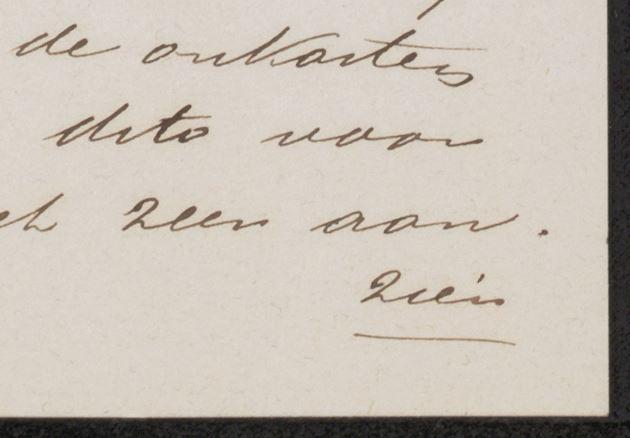 de onkosten
dito voor
ch zeer aan.